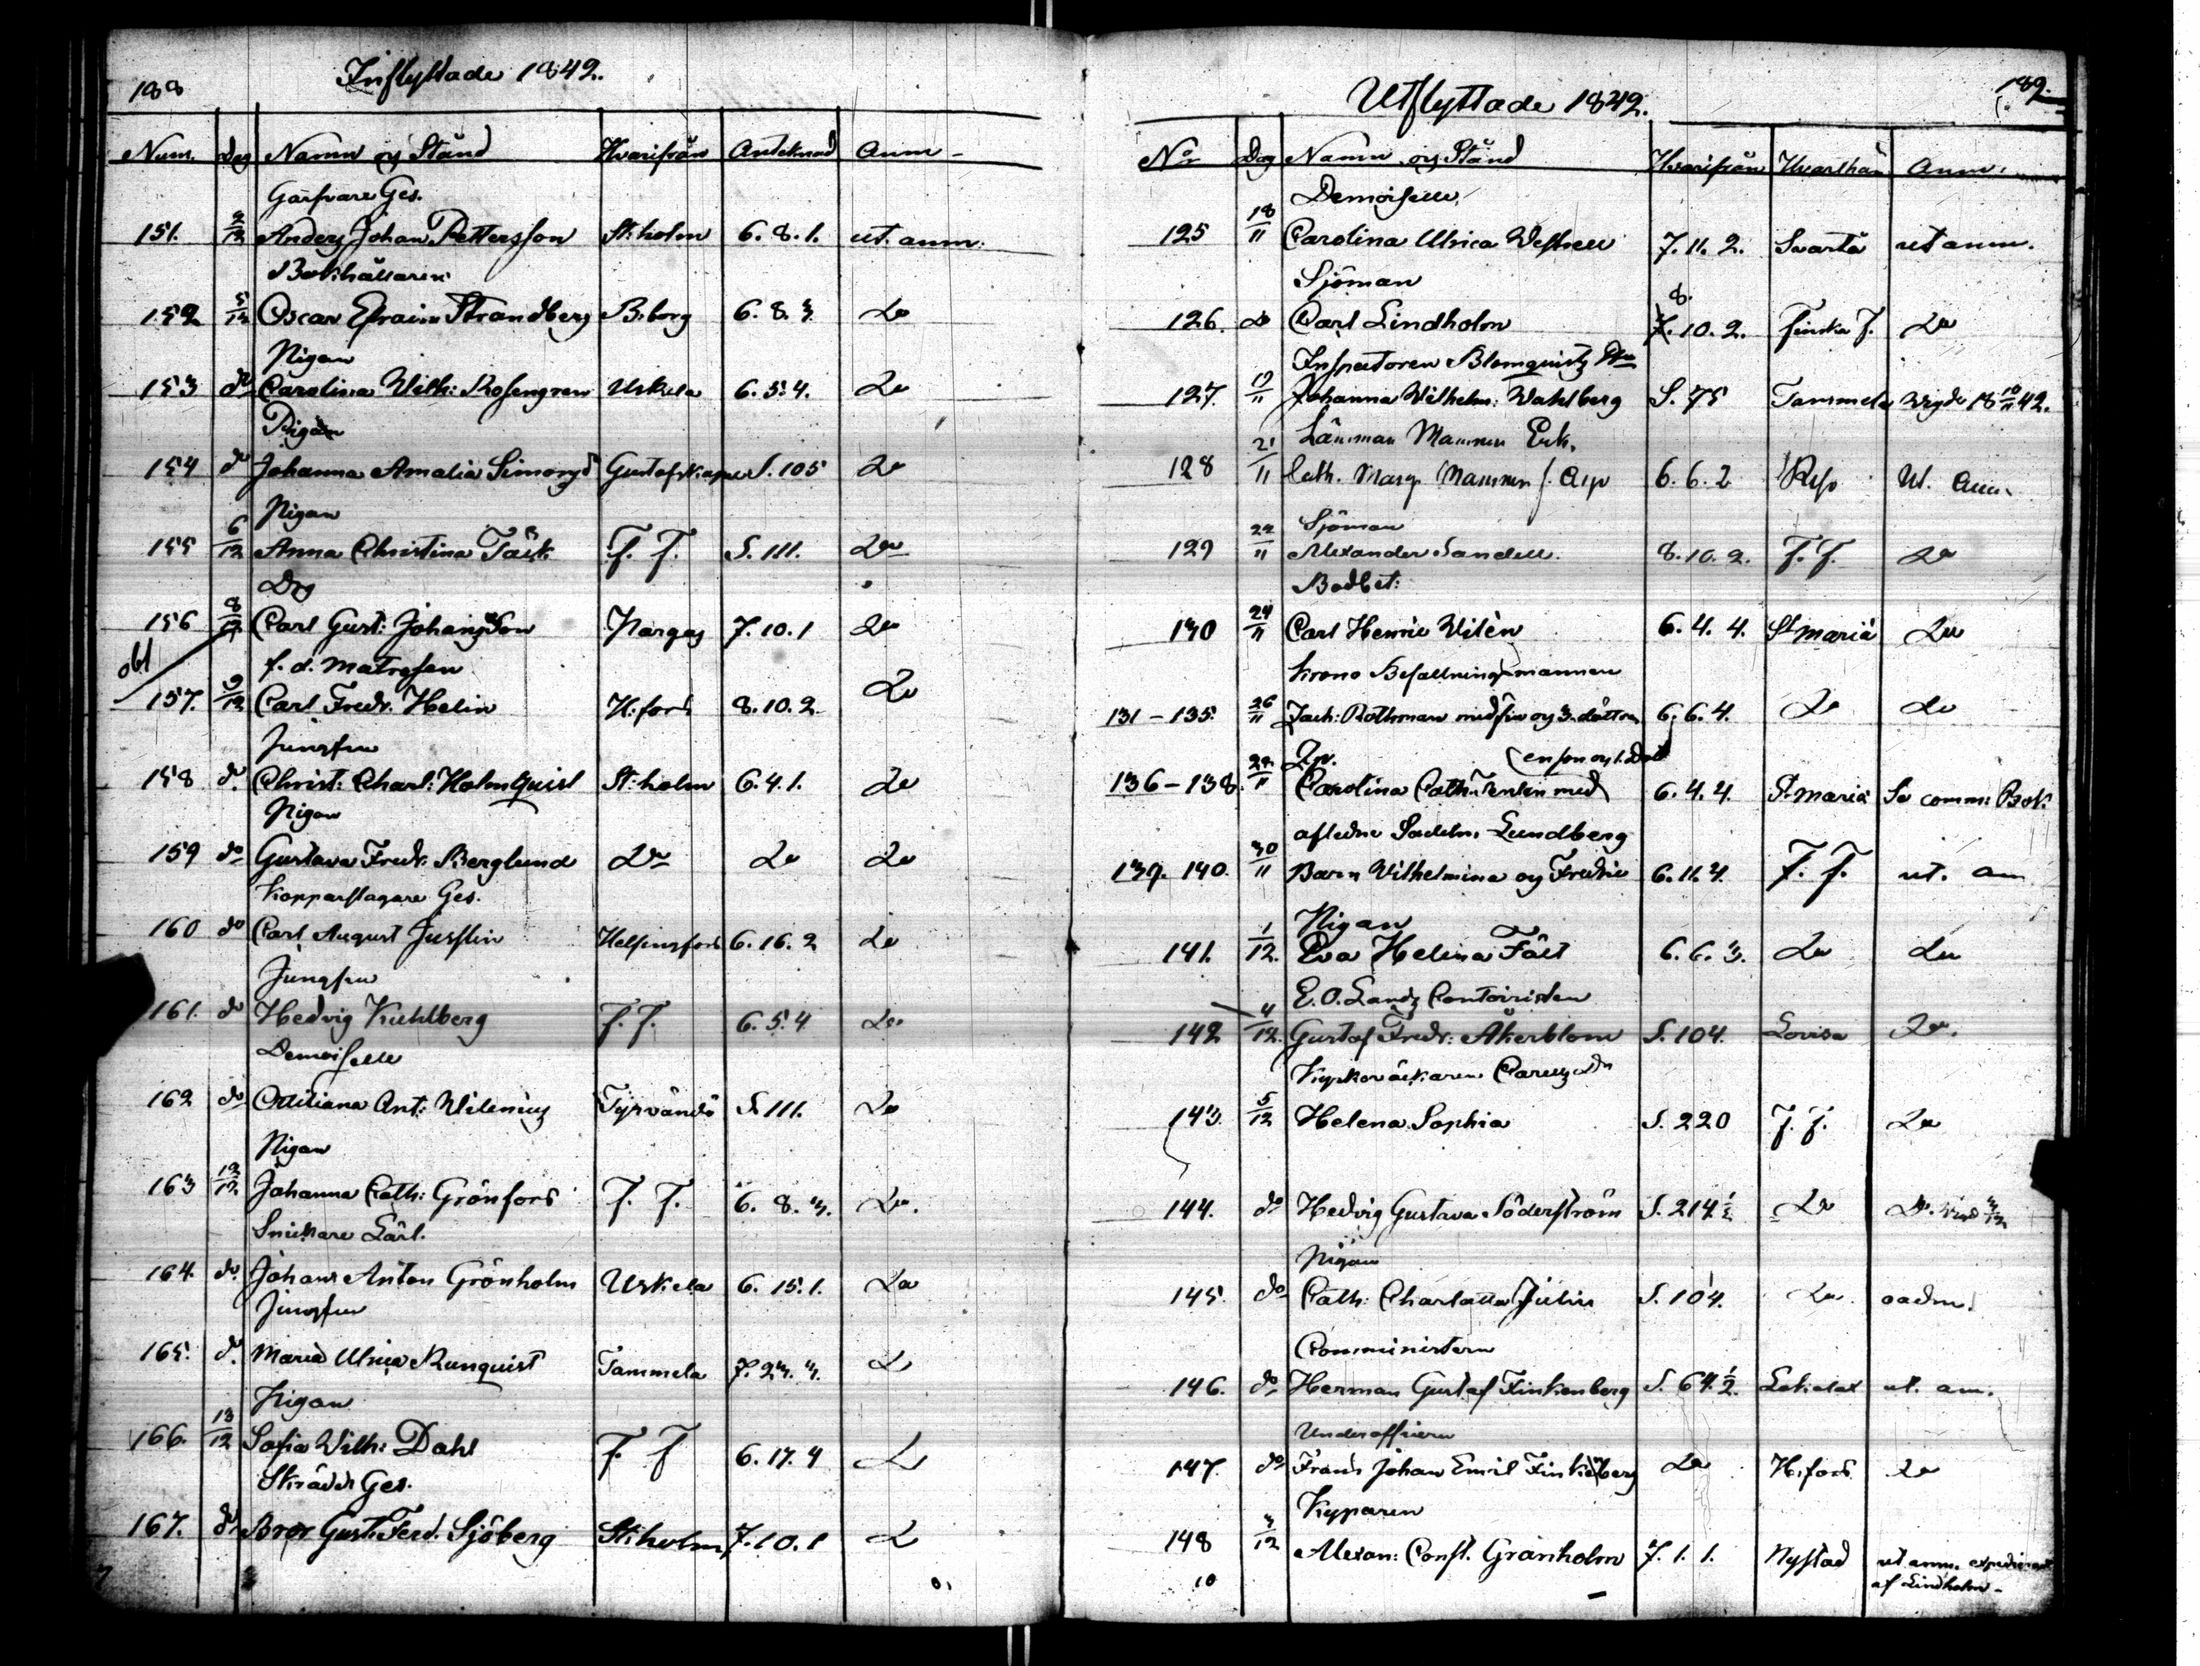 188 Inflyttade 1842.
Num. Dag Namn og Stånd Hvarifrån Anteknad Anm
Garfvare Ges.
151. 2/12 Anders Johan Pettersson St:holm 6. 8. 1. ut. anm:
Bokhållaren
152 5/12 Oscar Efraim Strandberg B:borg 6. 8. 3. Do
Pigan
153 do Carolina Wilh: Rosengren Uskela 6. 5. 4. Do
Pigan
154 do Johanna Amalia Simons S. 105 Do
Pigan
155 6/12 Anna Christina Täck F. F. S. 111. Do
Drg
156 8/12 Carl Gust: Johansson Pargas 7. 10. 1 Do
obs
f. d. Matrosen
157. 9/12 Carl Fredr. Helin H:fors 8. 10. 2. Do
Jungfru
158 do. Christ: Charl: Holmquist St:holm 6. 4. 1. Do
Pigan
159 do Gustava Fredr. Berglund Do Do Do
Kopparslagare Ges.
160 do Carl August Justlin Helsingfors 6. 16. 2 Do
Jungfru
161. do Hedvig Kuhlberg F. F. 6. 5. 4 Do
Demoiselle
162 do Ant: Wilenius Tyrvändö S. 111. Do
Pigan
163 12/12 Johanna Cath: Grönfors F. F. 6. 8. 3. Do.
Snickare Lärl.
164. do. Johan Anton Grönholm Uskela 6. 15. 1. Do
Jungfru
165. do. Maria Ulrica Runquist Tammela 7. 23. 3. Do
Pigan
166. 13/12 Sofia Wilh: Dahl F. F 6. 17. 4 Do
Skrädd. Ges.
167. do Bror Gust: Ferd. Sjöberg St:holm 7. 10. 1 Do
Utflyttade 1842. 189.
No Dag Namn og Stånd Hvarifrån Hvarthän Anm:
Demoiselle
125 18/11 Carolina Ulrica 7. 11. 2. Svartå ut anm.
Sjöman
8.
126. do Carl Lindholm 7. 10. 2. Finska f. Do
Inspectoren Blomquists
127. 19/11 Johanna Wilhelm: Wahlberg S. 75 Tammela 18 10/11 42.
Länsman
128 21/11 Cath. Marg. 6. 6. 2 Ut. Anm
Sjöman
129 22/11 Alexander Sandell. 8. 10. 2. F. F. Do
Bodbet:
130 24/11 Carl Henric Wilén 6. 4. 4. St Mariæ Do
Krono Befallningsmannen
131 - 135. 26/11 Jach: Rothman med fru og 3. döttrar 6. 6. 4. Do Do
en son og 1. Dott
136 - 138. 28/11 Carolina Cath: med 6. 4. 4. St. Mariæ Se comm: Bok.
afledne Sadelm. Lundberg
139. 140. 30/11 Barn Vilhelmina og Fredric 6. 11. 4. F. F. ut. an
Pigan
141. 1/12. Eva Helena Fält 6. 6. 3. Do Do
E. O. Lands Contoiristen
142 4/12. Gustaf Fredr: Åkerblom S. 104. Lovisa Do.
Kyrkoväktaren
143. 5/12 Helena Sophia S. 220 F. F. Do
144. do Hedvig Gustava Söderström S. 214 1/2 Do Do.
Pigan
145. do Cath: Charlotta Julin S. 104. Do oadm.
Comministern
146. do Herman Gustaf Finkenberg S. 64 1/2. ut. am.
Underofficern
147. do Frans Johan Emil Finkenberg Do H:fors Do
Kyparen
148 3/12 Alexan: Const. Granholm 7. 1. 1. Nystad ut anm.
af Lindholm -